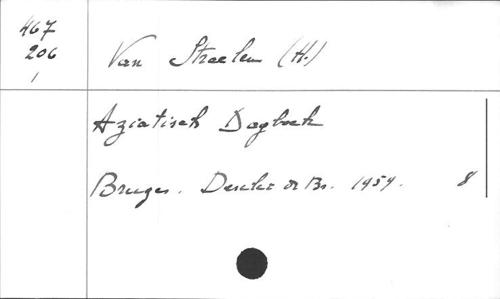 467
206
1
Van Straelen (H.)
Aziatisch Dagboek
Bruges. Desclée de Br. 1959. 8